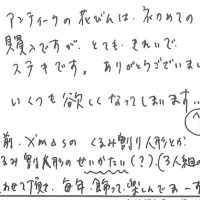 アンティークの花びんは、初めての
購入ですが、とても、きれいで
ステキです。ありがとうございまし
いくつも欲しくなってしまいます...
前、X'masの くるみ割り人形とか
るみ割人形のせいかたい(?)、(3人組の
わせて頂き、毎年、飾って、楽しんでまーす